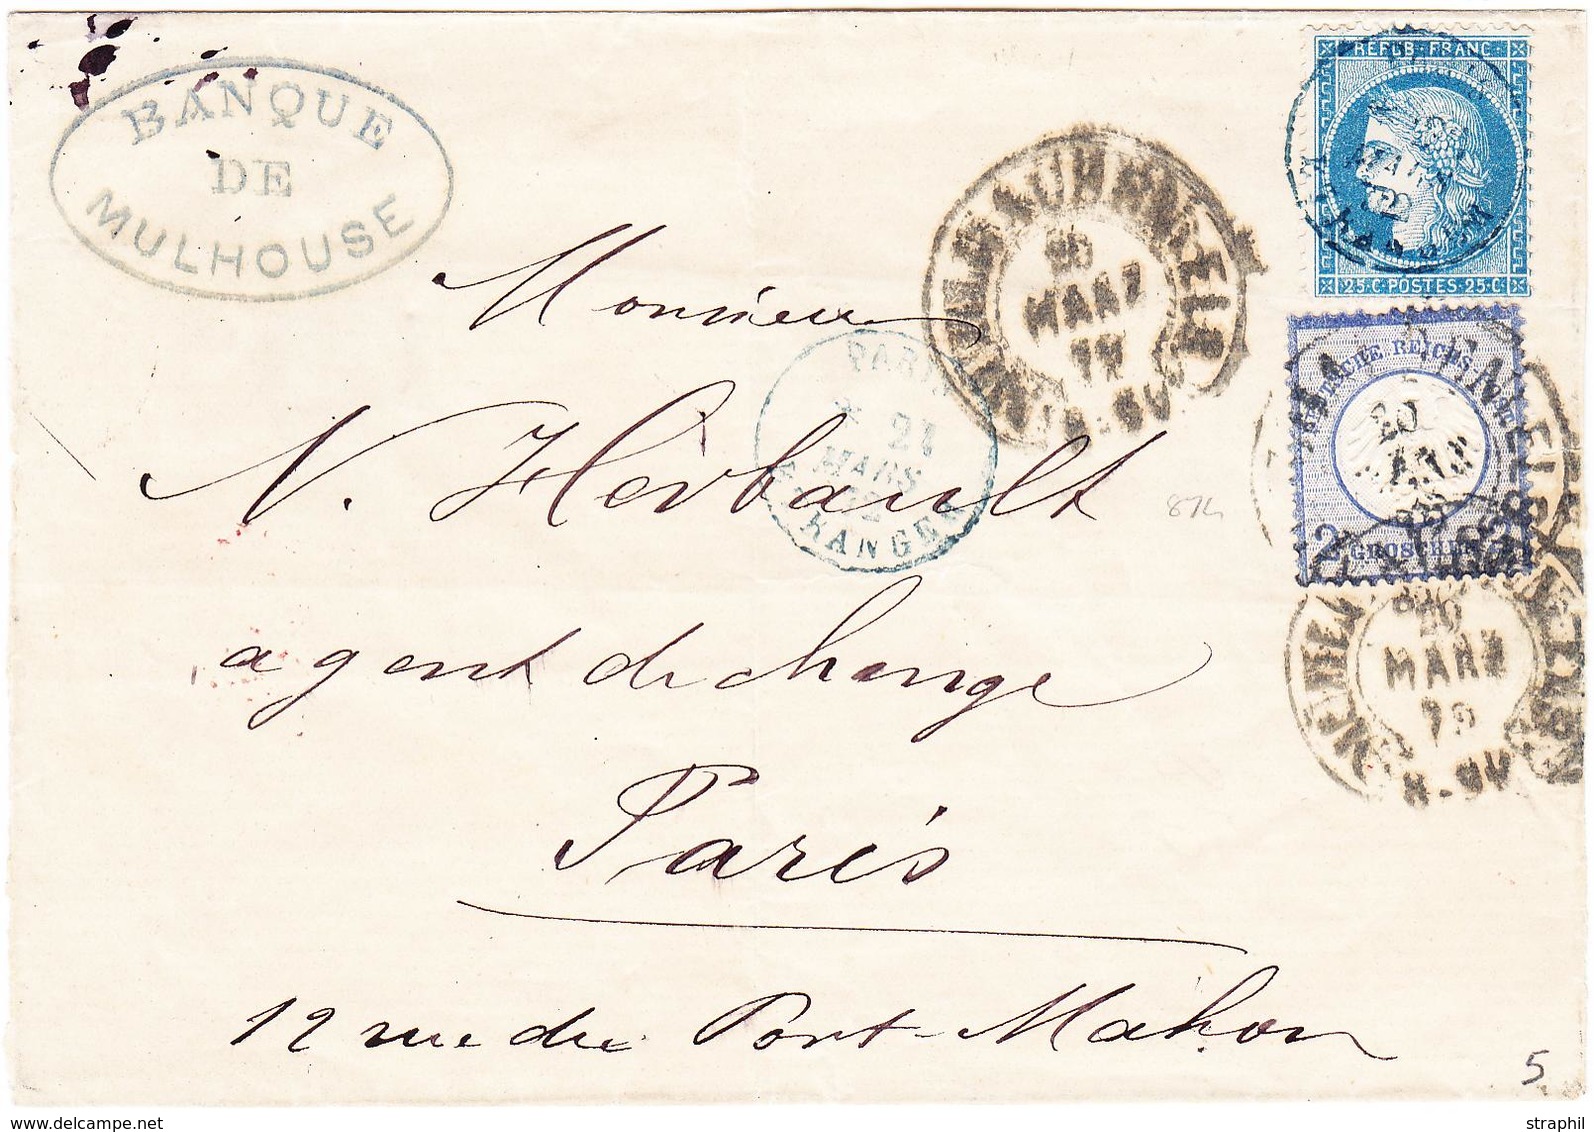 BANQUE
DE
MULHOUSE
REPUB · FRANC
MARS
25 · C · POSTES · 25 · C
20
MARZ
72
DEUTSCHE REICHS-POST
20
2 GROSCHEN
20
MARZ
72
PARIS
21
MARS
72
ETRANGER
Monsieur
N. Herbault
agent de change
Paris
12 rue du Port-Mahon
874
5
www.delcampe.net
straphil